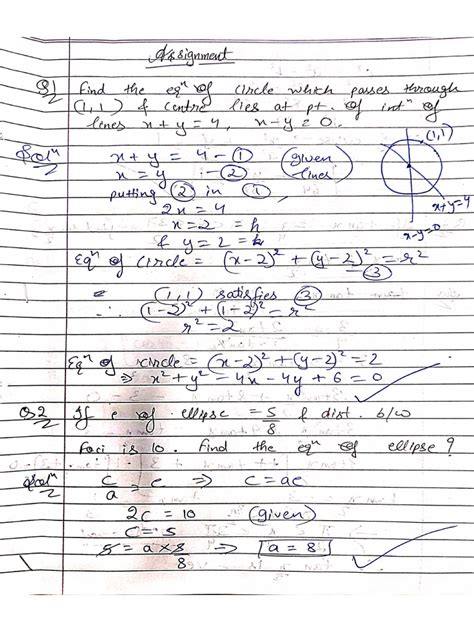 Assignment
Q1 Find the eqⁿ of circle which passes through
(1,1) & centre lies at pt. of intⁿ of
lines x + y = 4, x - y = 0.
Solⁿ x + y = 4 - ① (given
x = y - ② lines)
putting ② in ①,
2x = 4
x = 2 = h
& y = 2 = k
(1,1)
x+y=4
x-y=0
Eqⁿ of circle = (x-2)² + (y-2)² = r²
③
∴ (1,1) satisfies ③
(1-2)² + (1-2)² = r²
r² = 2
Eqⁿ of circle = (x-2)² + (y-2)² = 2
⇒ x² + y² - 4x - 4y + 6 = 0
Q.2 If e of ellipse = 5/8 & dist. b/w
foci is 10. Find the eqⁿ of ellipse ?
Solⁿ c/a = e ⇒ c = ae
2c = 10 (given)
c = 5
5 = a × 5/8 ⇒ a = 8